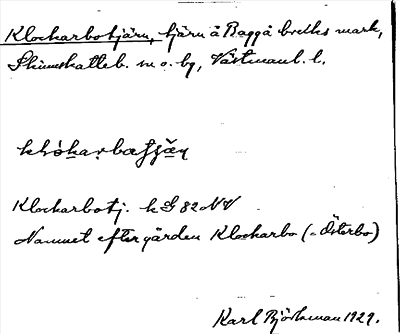 Klockarbotjärn, tjärn å Baggå bruks mark,
Skinnskatteb. m o. by, Västmanl. l.
Klockarbotj. k G 82 NV
Namnet efter gården Klockarbo (= Österbo)
Karl Björkman 1929.